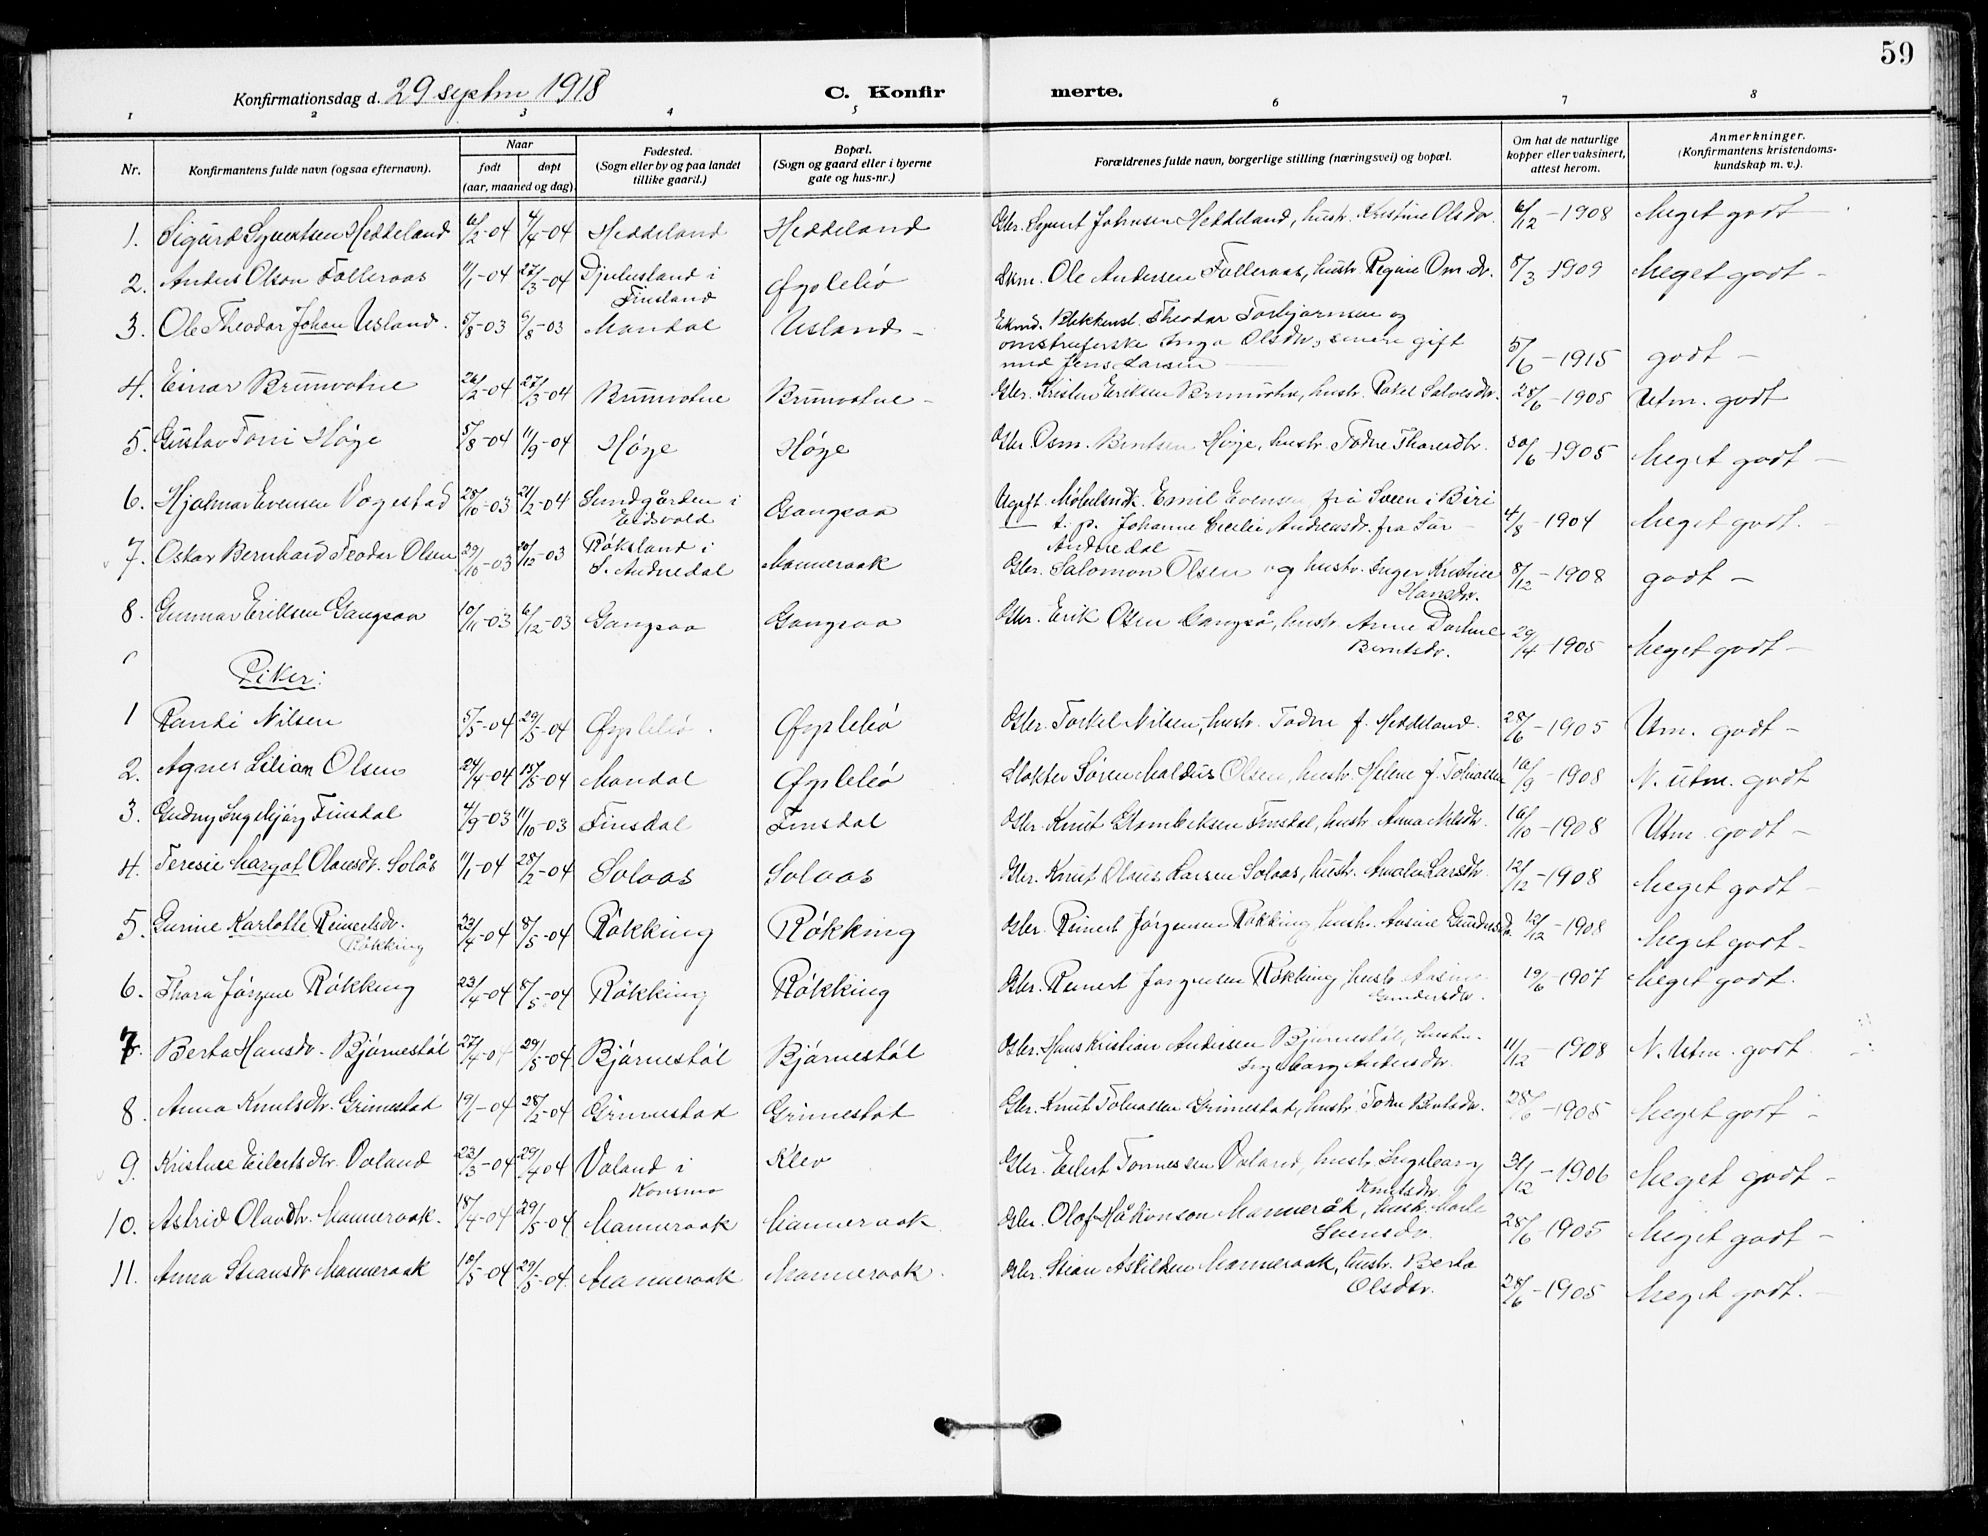 59
Konfirmationsdag d. 29 septbr 1918
C. Konfir merte.
1 2 3 4 5 6 7 8
Nr. Konfirmantens fulde navn (ogsaa efternavn). Naar født døpt (aar, maaned og dag). Fødested. (Sogn eller by og paa landet tillike gaard.) Bopæl. (Sogn og gaard eller i byerne gate og hus-nr.) Forældrenes fulde navn, borgerlige stilling (næringsvei) og bopæl. Om hat de naturlige kopper eller vaksinert, attest herom. Anmerkninger. (Konfirmantens kristendoms-kundskap m. v.).
1. Sigurd Syvertsen Heddeland 6/2-04 4/4-04 Heddeland Heddeland Gbr. Syvert Johnsen Heddeland, hustr. Kristine Olsdtr. 6/12-1908 Meget godt
2. Anders Olson Falleraas 11/1-04 27/3-04 Djubesland i Finsland Øypleliø Ole Andersen Falleraas, hustr. Regine Om.dtr. 8/3-1909 Meget godt -
3. Ole Theodor Johan Uesland. 5/8-03 6/8-03 Mandal Uesland - Ekmd. Blikkensl. Theodor Torbjørnsen og
omstreiferske Inga Olsdtr, senere gift
med Jens Larsen 5/6-1915 godt -
4. Einar Brunvatne 26/2-04 27/3-04 Brunvatne Brunvatne - Gbr. Kristen Eriksen Brunvatne, hustr. Rakel Salvesdtr. 28/6-1905 Utm. godt
5. Gustav Tomi Høye 5/8-04 11/9-04 Høye Høye Gbr. Osm. Berntsen Høye, hustr. Todne Tharaldtr. 30/6-1905 Meget godt -
6. Hjalmar Evensen Vagestad 28/10-03 21/2-04 Sundgården i Eidsvold Gangsaa Ugift Møbelsndk. Emil Evensen fra Sveen i Biri
t. p. Johanne Cecilie Andreasdtr. fra Sør -
Audnedal 4/8-1904 Meget godt.
7. Oskar Bernhard Teodor Olsen 29/10-03 20/12-03 Røksland i S. Audnedal Manneraak Gbr. Salomon Olsen og hustr. Inger Kristine
Hansdtr. 8/12-1908 godt -
8. Gunnar Eriksen Gangsaa 10/11-03 6/12-03 Gangsaa Gangsaa Gbr. Erik Olsen Gangså, hustr. Anne Dorthea
Berntsdtr. 29/4-1905 Meget godt -
Piker:
1 Randi Nilsen 5/5-04 29/5-04 Øypleliø. Øypleliø Gbr. Torkel Nilsen, hustr. Todne f. Heddeland. 28/6-1905 Utm. godt -
2. Agnes Lilian Olsen 24/4-04 15/5-04 Mandal Øypleliø Slakter Søren Maldus Olsen, hustr. Helene f. Tobiassen 16/9-1908 N. utm. godt
3. Gudny Ingebjørg Finsdal 4/9-03 11/10-03 Finsdal Finsdal Gbr. Knut Finsdal, hustr. Anna Nilsdtr. 16/10-1908 Utm. godt -
4. Teresie Margot Olavsdtr. Solås 11/1-04 28/2-04 Solaas Solaas Gbr. Knut Olaus Larsen Solaas, hustr. Amalie Larsdtr. 12/12-1908 Meget godt -
5. Gurine Karlotte Reinertsdtr.
Røkking 23/4-04 8/5-04 Røkking Røkking Gbr. Reinert Jørgensen Røkking, hustr. Aasine Gundersd. 12/12-1908 Meget godt -
6. Thora Jørgine Røkking 23/4-04 8/5-04 Røkking Røkking Gbr. Reinert Jørgensen Røkking, hustr. Aasine
Gundersdtr. 19/6-1907 Meget godt.
7. Berta Hansdtr. Bjørnestøl 27/4-04 29/5-04 Bjørnestøl Bjørnestøl Gbr. Hans Kristian Andersen Bjørnestøl, hustr.
Ingeborg Andersdtr. 11/12-1908 N. Utm. godt
8. Anna Knutsdtr. Grimestad 19/1-04 28/2-04 Grimestad Grimestad Gbr. Knut Tobiassen Grimestad, hustr. Todne Berntsdtr. 28/6-1905 Meget godt -
9. Kristine Eilertsdtr. Valand 23/3-04 29/4-04 Valand i Konsmo Klev Gbr. Eilert Tønnessen Valand, hustr. Ingeborg
Knutsdtr. 31/12-1906 Meget godt -
10. Astrid Olavdtr. Manneraak. 18/4-04 29/5-04 Manneraak Manneraak Gbr. Olof Håkonson Manneråk, hustr. Marte
Svensdtr. 28/6-1905 Meget godt -
11. Anna Stiansdtr Manneraak 10/5-04 29/5-04. Manneraak Manneraak. Gbr. Stian Askildsen Manneraak, hustr. Berta
Olsdtr. 28/6-1905 Meget godt. -